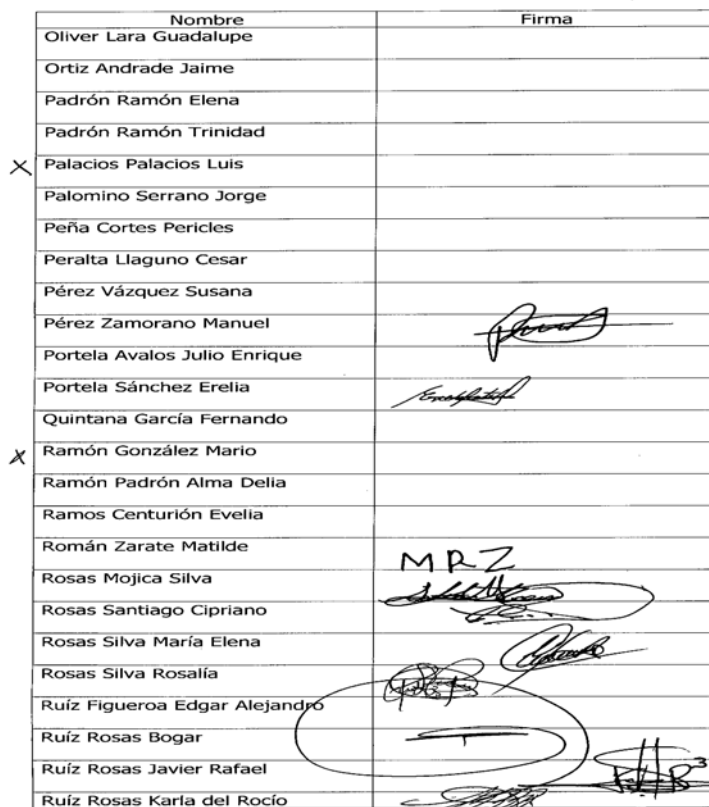 Nombre Firma
Oliver Lara Guadalupe
Ortiz Andrade Jaime
Padrón Ramón Elena
Padrón Ramón Trinidad
X Palacios Palacios Luis
Palomino Serrano Jorge
Peña Cortes Pericles
Peralta Llaguno Cesar
Pérez Vázquez Susana
Pérez Zamorano Manuel
Portela Avalos Julio Enrique
Portela Sánchez Erelia
Quintana García Fernando
X Ramón González Mario
Ramón Padrón Alma Delia
Ramos Centurión Evelia
Román Zarate Matilde MRZ
Rosas Mojica Silva
Rosas Santiago Cipriano
Rosas Silva María Elena
Rosas Silva Rosalía
Ruíz Figueroa Edgar Alejandro
Ruíz Rosas Bogar
Ruíz Rosas Javier Rafael
Ruíz Rosas Karla del Rocío